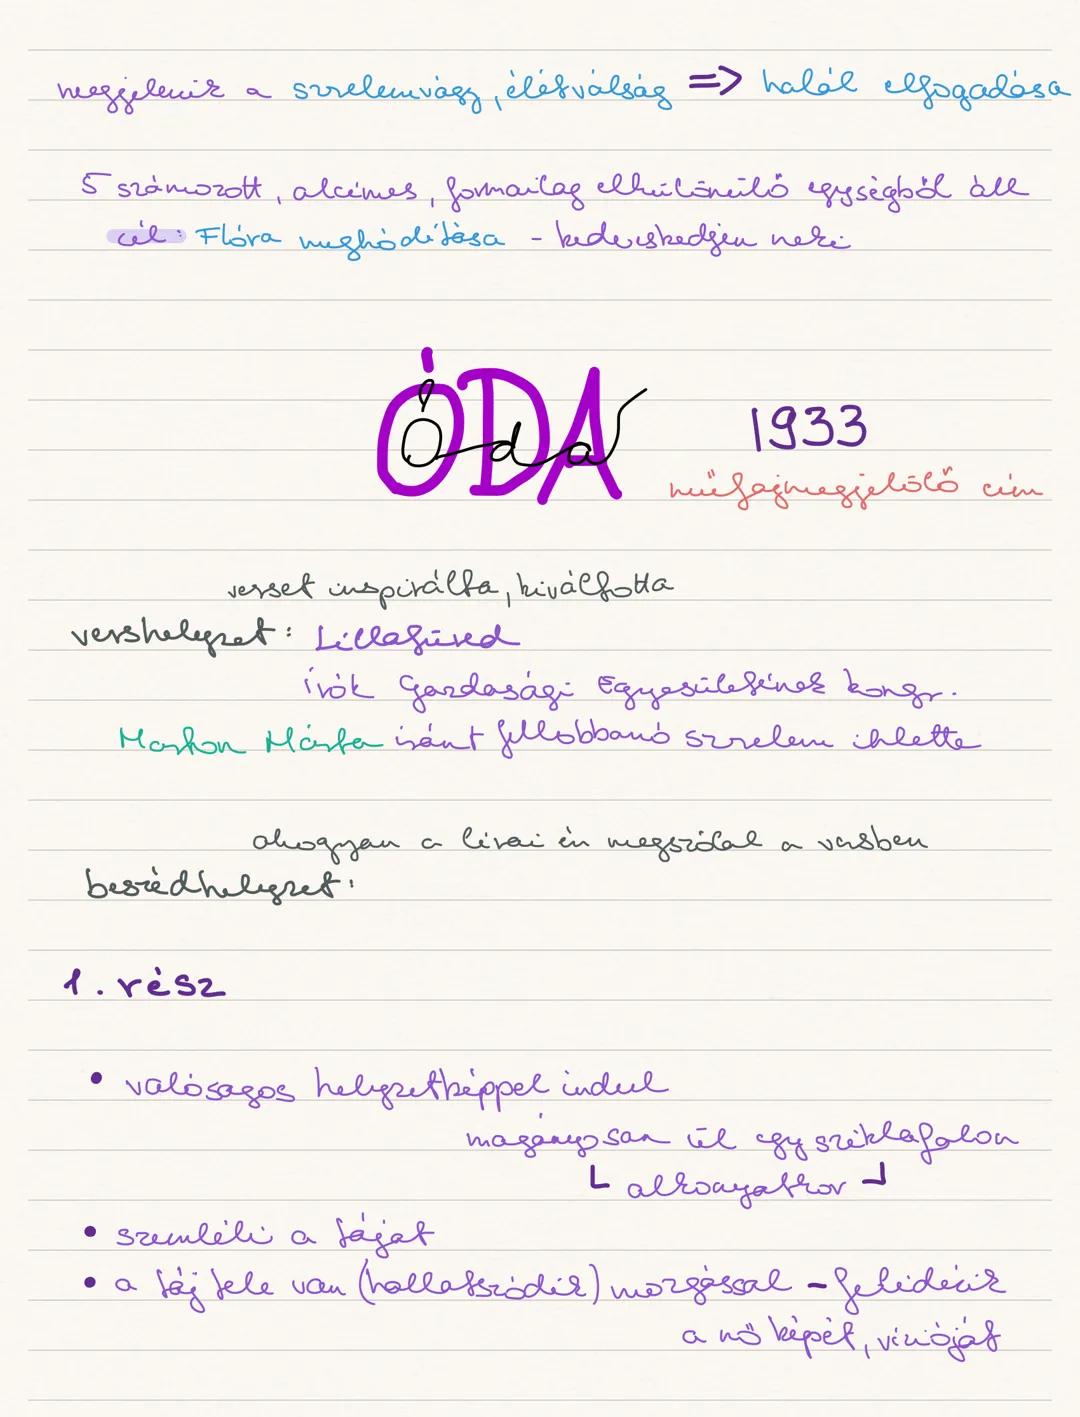 megjelenik a szerelemvágy, életválság => halál elfogadása
5 számozott, alcímes, formailag elkülönülő egységből áll
cél: Flóra meghódítása - kedveskedjen neki
ÓDA
Óda
1933
műfajmegjelölő cím
verset inspirálta, kiváltotta
vershelyzet: Lillafüred
Írók Gazdasági Egyesületének kongr.
Marton Márta iránt fellobbanó szerelem ihlette
ahogyan a lírai én megszólal a versben
beszédhelyzet:
1. rész
• valóságos helyzetképpel indul
magányosan ül egy sziklafalon
alkonyatkor
• szemléli a tájat
• a táj tele van (hallatszódik) mozgással - felidézik
a nő képét, vízióját